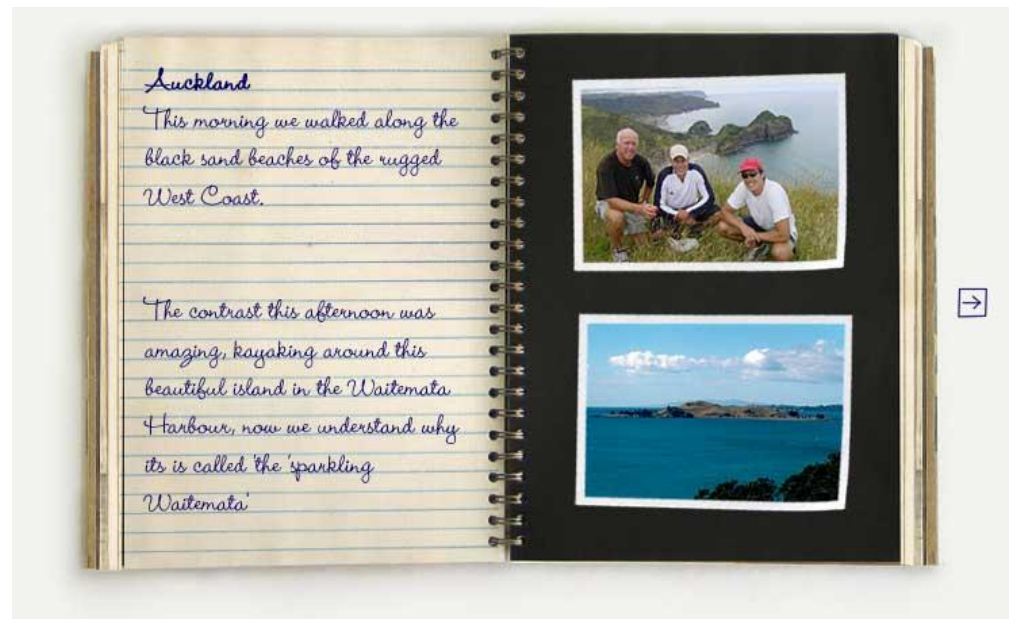 Auckland
This morning we walked along the
black sand beaches of the rugged
West Coast.
The contrast this afternoon was
amazing, kayaking around this
beautiful island in the Waitemata
Harbour, now we understand why
its is called 'the 'sparkling
Waitemata'